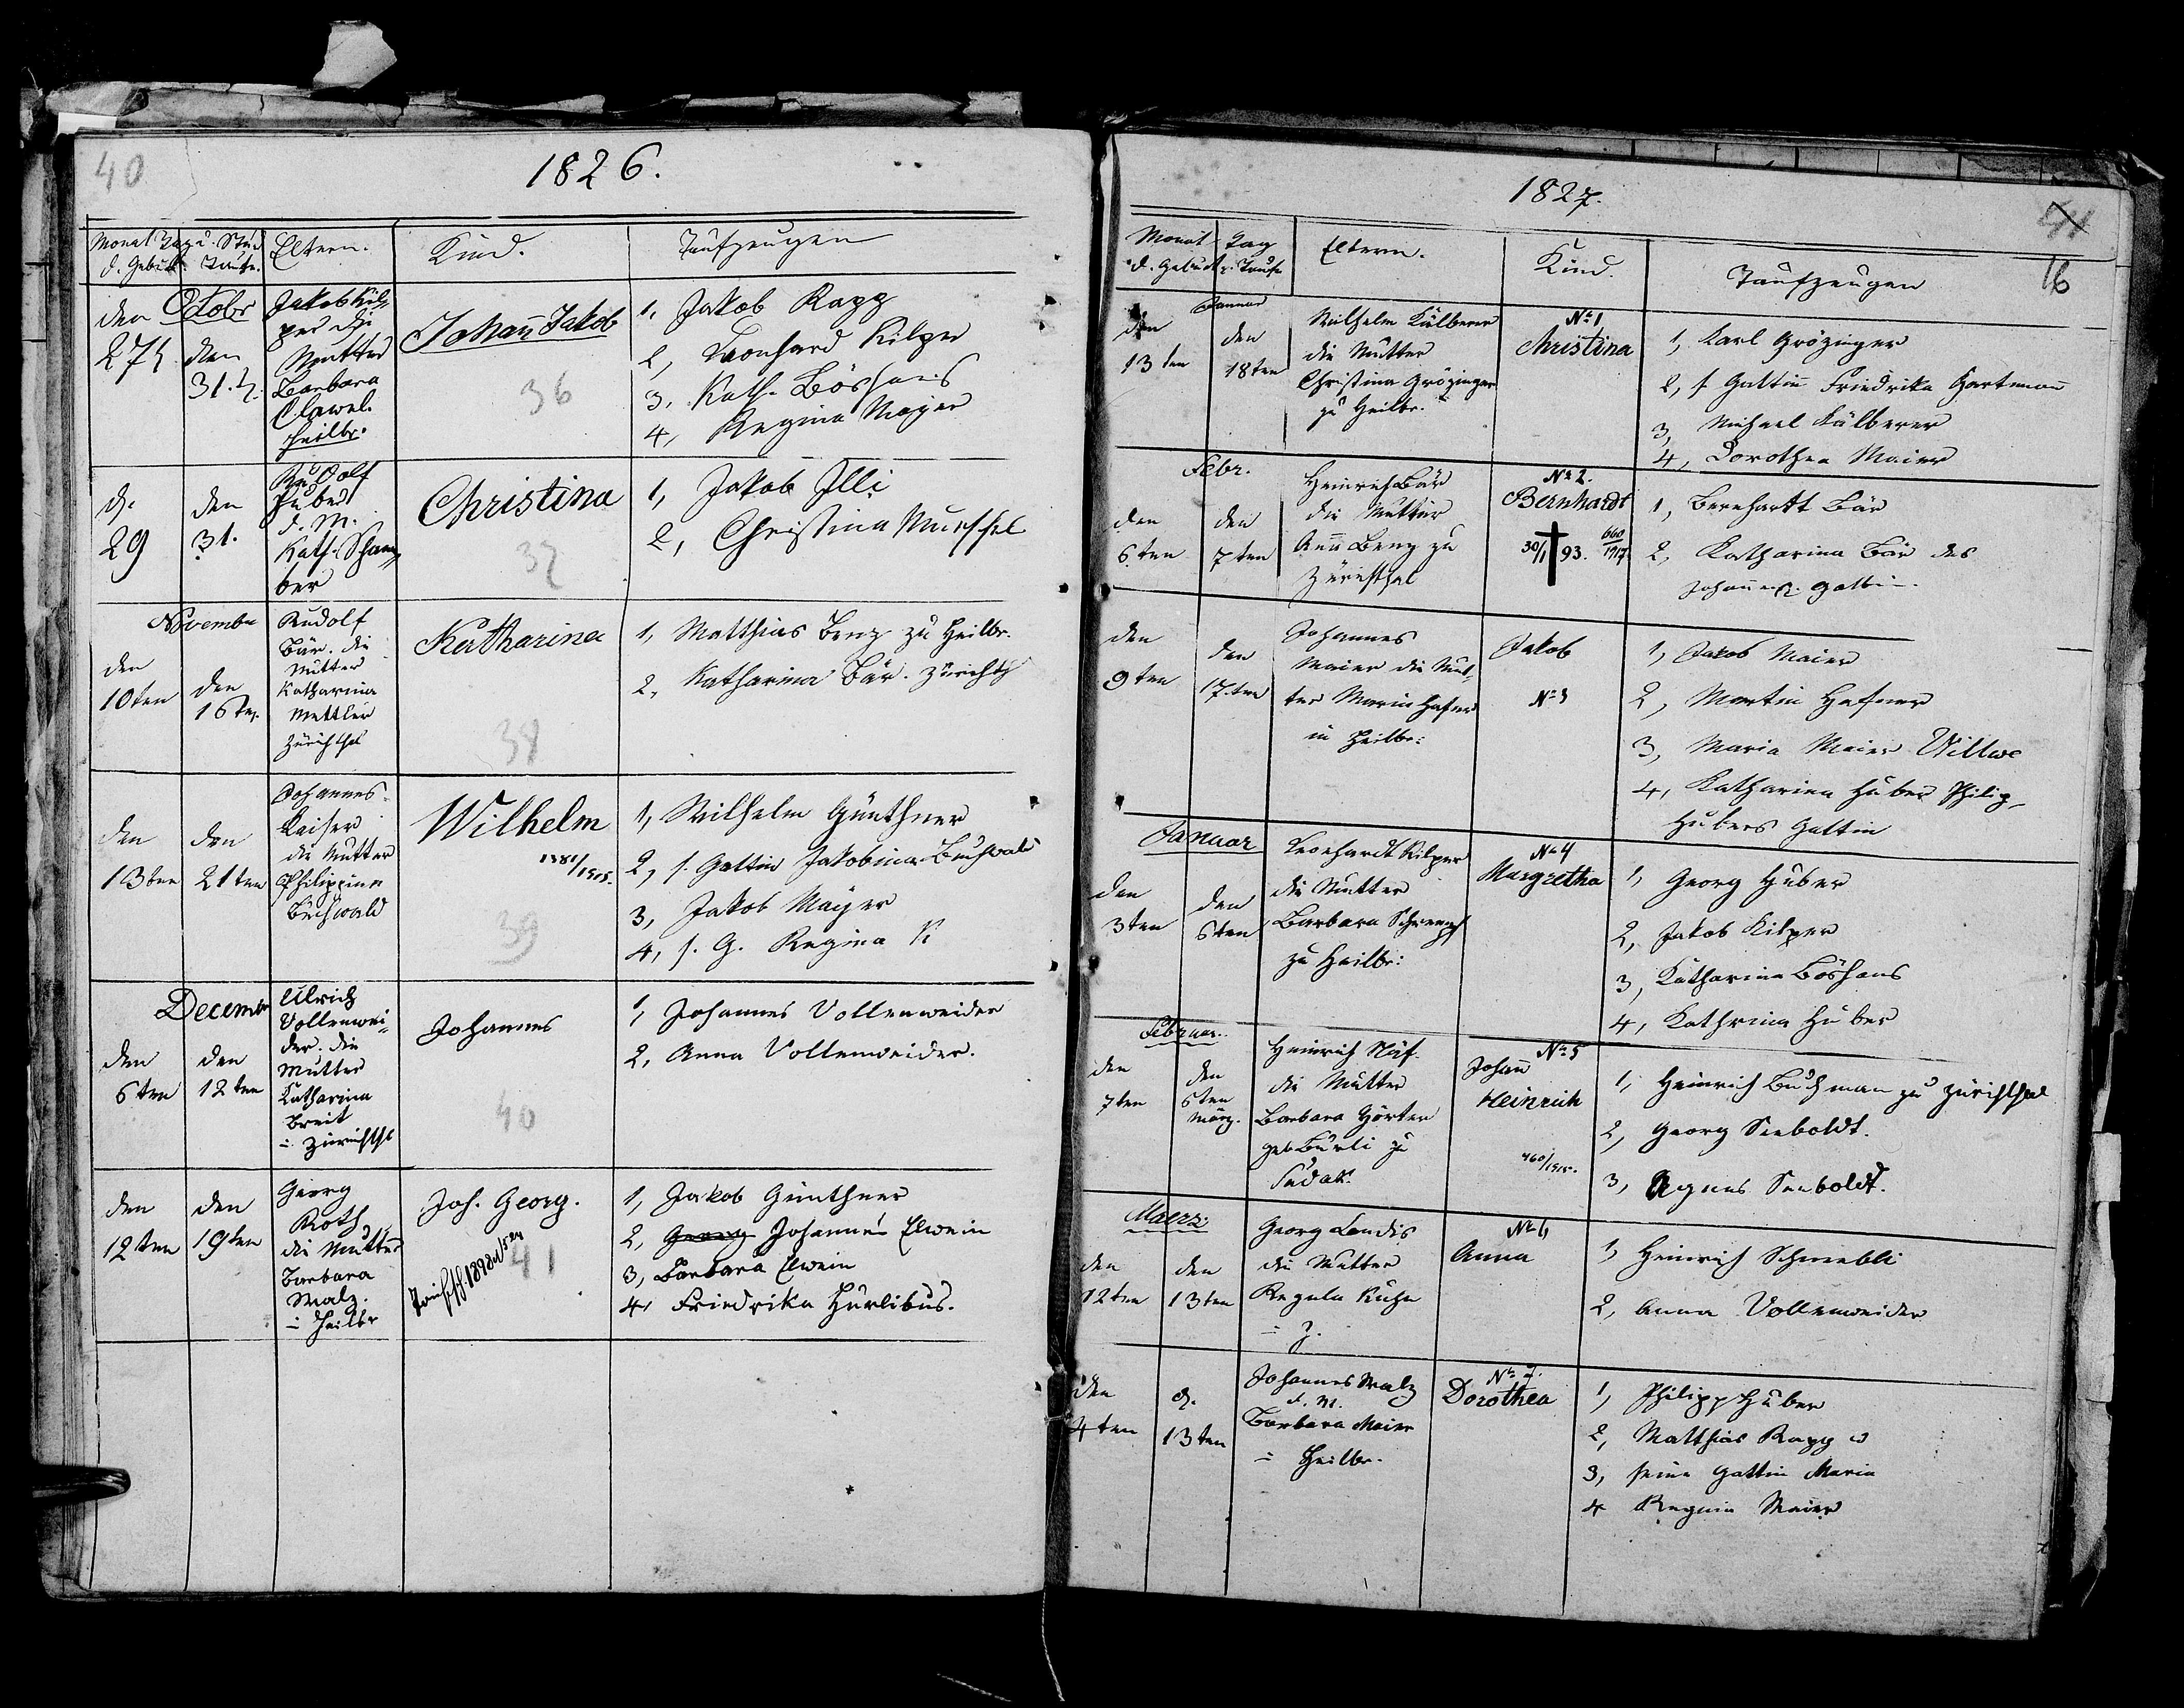 40
1826.
Monat Tag u. Stud
d. Geburt Taufe.
Eltern.
Kind.
Taufzeugen
Octobr
den
27ts
den
31. ts.
Jakob Kil-
per die
Mutter
Barbara
Heilbr.
Johan̄ Jakob
36
1, Jakob Rapp
2, Leonhard Kilper
3, Kath. Böshans
4, Regina Majer
d.
29
den
31.
Rudolf
Huber
d. M.
Kath. Scham-
ber
Christina
37
1, Jakob Illi
2, Christina Murschel
Novembr
den
10ten
den
16ten.
Rudolf
Bär. die
Mutter
Katharina
Mettler
Zürichthal
Katharina
38
1, Matthias Benz zu Heilbr.
2, Katharina Bär. Zürichth
den
13ten
den
21ten
Johannes
Kaiser
die Mutter
Philippina
Buchwald
Wilhelm
1381/1915.
39
1, Wilhelm Günthner
2, s. Gattin Jakobina Buchwald
3, Jakob Mayer
4, s. G. Regina K
Decembr
den
6ten
den
12ten
Ulrich
Vollenwei-
der. die
Mutter
Katharina
Breit
i. Zürichthl
Johannes
40
1, Johannes Vollenweider
2, Anna Vollenweider.
den
12ten
den
19ten
Georg
Roth
die Mutter
Barbara
Walz.
i. Heilbr
Joh. Georg.
41
1, Jakob Günthner
2, Georg Johannes Elwein
3, Barbara Elwein
4, Friedrika Hürlibus.
1827.
41
16
Monat Tag
d. Geburt u. Taufe
Eltern.
Kind.
Taufzeugen
Januar
den
13ten
den
18ten
Wilhelm Kälberer
die Mutter
Christina Grözinger
zu Heilbr.
No 1
Christina
1, Karl Grözinger
2, s. Gattin Friedrika Hartman̄
3, Michael Kälberer
4, Dorothea Maier
Febr.
den
6ten
den
7ten
Heinrich Bär
die Mutter
An̄a Benz zu
Zürichthal
No 2.
Bernhardt
30/1 † 93. 660/1917.
1, Bernhartt Bär
2, Katharina Bär des
Johannes. Gattin.
den
9ten
den
17ten
Johannes
Maier die Mut-
ter Maria Hafner
in Heilbr:
Jakob
No 3
1, Jakob Maier
2, Martin Hafner
3, Maria Maier Wittwe
4, Katharina Huber Philip-
Hubers Gattin
Januar
den
3ten
den
6ten
Leonhardt Kilper
die Mutter
Barbara Schrempf
zu Heilbr:
No 4
Margretha
1, Georg Huber
2, Jakob Kilper
3, Katharina Böshans
4, Kathrina Huber
Februar.
den
7ten
den
6ten
März.
Heinrich Näf.
die Mutter
Barbara Görter
geb Bürli zu
Sudak.
No 5
Johan̄
Heinrich
460/1915.
1, Heinrich Buchman zu Zürichthal
2, Georg Seeboldt.
3, Agnes Seeboldt.
Maerz
den
12ten
den
13ten
Georg Landis
die Mutter
Regula Kuhn
i. Z.
No 6
Anna
1, Heinrich Schneebli
2, Anna Vollenweider
den
4ten
d.
13ten
Johannes Walz
d. M.
Barbara Maier
i. Heilbr.
No 7.
Dorothea
1, Philipp Huber
2, Matthias Rapp u
3, seine Gattin Maria
4 Regina Maier